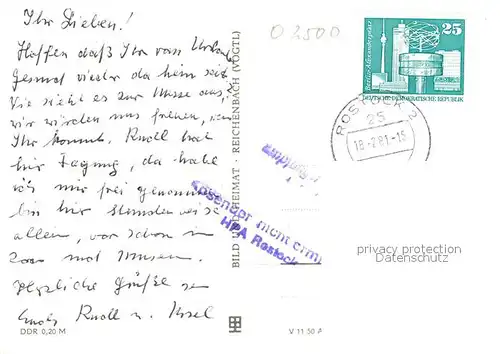 Ihr Lieben!
Hoffen daß Ihr vom Urlaub
gesund wieder da heim seit
Wie sieht es zur Messe aus,
wir würden uns freuen, wenn
Ihr kommt. Knoll hat
hier Tagung, da habe
ich mir frei genommen
bin hier Stunden
allein, war schon im
Zoo und Museum.
Herzliche Grüße
Euch Knoll u.
DDR 0,20 M
BILD UND HEIMAT · REICHENBACH (VOGTL)
V 11 50 A
02500
25
Berlin, Alexanderplatz
DEUTSCHE DEMOKRATISCHE REPUBLIK
ROSTOCK 2
25
18.-2.81.-15
Empfänger
Absender nicht erm
HPA Rostock
privacy protection
Datenschutz